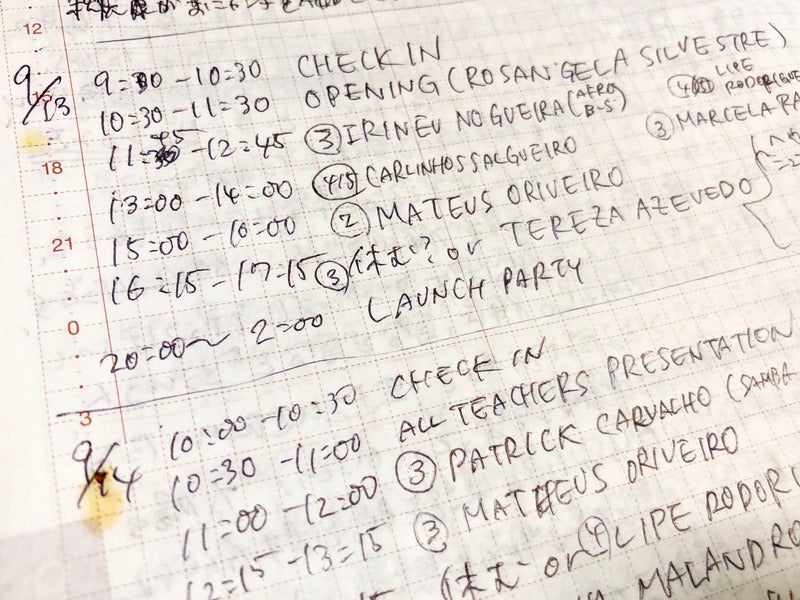 12
9/13 9=30 -10=30 CHECK IN
10=30 -11=30 OPENING (ROSANGELA SILVESTRE)
11=45 -12=45 ③ IRINEU NOGUEIRA (AFRO B-S) LIPE
18
③ MARCELA
13=00 -14=00 CARLINHOS SALGUEIRO
15=00 -16=00 ② MATEUS ORIVEIRO
21
16=15 -17=15 ③ 休む? or TEREZA AZEVEDO
0
20=00〜 2=00 LAUNCH PARTY
3
9/14 10=00 -10=30 CHECK IN
10=30 -11=00 ALL TEACHERS PRESENTATION
11=00 -12=00 ③ PATRICK CARVACHO (SAMBA
12=15 -13=15 ③ MATHEUS ORIVEIRO
休む or ④ LIPE RODORI
MALANDRO